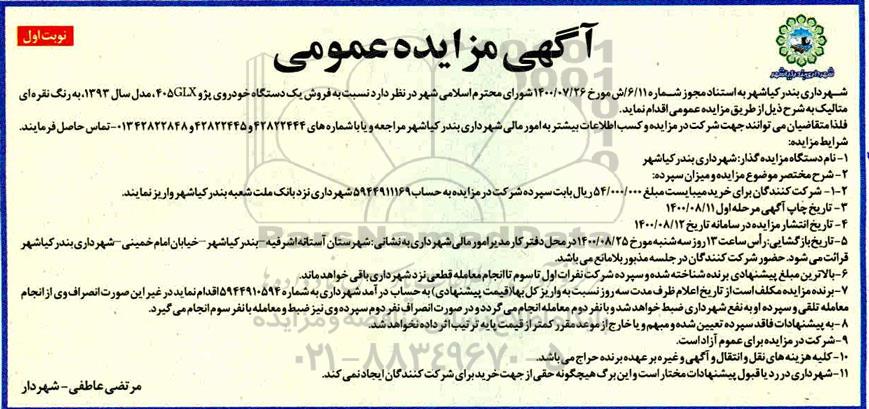 نوبت اول
آگهی مزایده عمومی
شهرداری بندر کیاشهر
شهرداری بندر کیاشهر به استناد مجوز شماره ۶/۱۱/ش مورخ ۱۴۰۰/۰۷/۲۶ شورای محترم اسلامی شهر در نظر دارد نسبت به فروش یک دستگاه خودروی پژو ۴۰۵GLX، مدل سال ۱۳۹۳، به رنگ نقره ای
متالیک به شرح ذیل از طریق مزایده عمومی اقدام نماید.
فلذا متقاضیان می توانند جهت شرکت در مزایده و کسب اطلاعات بیشتر به امور مالی شهرداری بندر کیاشهر مراجعه و یا با شماره های ۴۲۸۲۲۴۴۴ و ۴۲۸۲۲۴۴۵ و ۰۱۳۴۲۸۲۲۸۴۸-تماس حاصل فرمایند.
شرایط مزایده:
۱- نام دستگاه مزایده گذار: شهرداری بندر کیاشهر
۲- شرح مختصر موضوع مزایده و میزان سپرده:
۱-۲- شرکت کنندگان برای خرید میبایست مبلغ ۵۴/۰۰۰/۰۰۰ ریال بابت سپرده شرکت در مزایده به حساب ۵۹۴۴۹۱۱۱۶۹ شهرداری نزد بانک ملت شعبه بندر کیاشهر واریز نمایند.
۳- تاریخ چاپ آگهی مرحله اول ۱۴۰۰/۰۸/۱۱
۴- تاریخ انتشار مزایده در سامانه تاریخ ۱۴۰۰/۰۸/۱۲
۵- تاریخ بازگشایی: رأس ساعت ۱۳ روز سه شنبه مورخ ۱۴۰۰/۰۸/۲۵ در محل دفتر کار مدیر امور مالی شهرداری به نشانی: شهرستان آستانه اشرفیه-بندر کیاشهر-خیابان امام خمینی-شهرداری بندر کیاشهر
قرائت می شود. حضور شرکت کنندگان در جلسه مذبور بلامانع می باشد.
۶-بالاترین مبلغ پیشنهادی برنده شناخته شده و سپرده شرکت نفرات اول تا سوم تا انجام معامله قطعی نزد شهرداری باقی خواهد ماند.
۷-برنده مزایده مکلف است از تاریخ اعلام ظرف مدت سه روز نسبت به واریز کل بها (قیمت پیشنهادی) به حساب درآمد شهرداری به شماره ۵۹۴۴۹۱۰۵۹۴ اقدام نماید در غیر این صورت انصراف وی از انجام
معامله تلقی و سپرده او به نفع شهرداری ضبط خواهد شد و با نفر دوم معامله انجام می گردد و در صورت انصراف نفر دوم سپرده وی نیز ضبط و معامله با نفر سوم انجام می گیرد.
۸-به پیشنهادات فاقد سپرده تعیین شده و مبهم و یا خارج از موعد مقرر کمتر از قیمت پایه ترتیب اثر داده نخواهد شد.
۹-شرکت در مزایده برای عموم آزاد است.
۱۰-کلیه هزینه های نقل و انتقال و آگهی و غیره بر عهده برنده حراج می باشد.
۱۱-شهرداری در رد یا قبول پیشنهادات مختار است و این برگ هیچگونه حقی از جهت خرید برای شرکت کنندگان ایجاد نمی کند.
مرتضی عاطفی-شهردار
ParsNamadData
۰۲۱-۸۸۳۴۹۶۷۰-۵